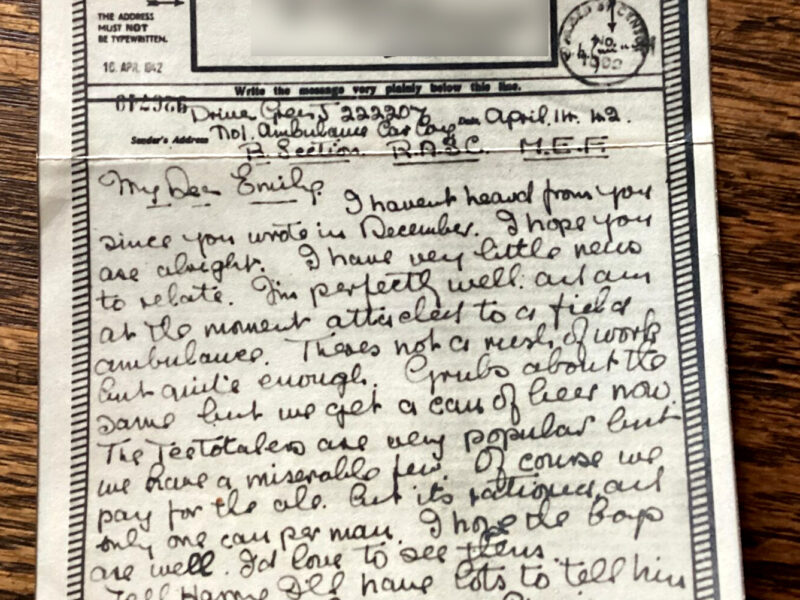 THE ADDRESS
MUST NOT
BE TYPEWRITTEN.
10 APR 1942
Write the message very plainly below this line.
Driver 222207 Date April. 14. 42.
Sender's Address No1. Ambulance Car Coy
B. Section. R.A.S.C. M.E.F.
My Dear Emily.
I havent heard from you
since you wrote in December. I hope you
are alright. I have very little news
to relate. I'm perfectly well. and am
at the moment attached to a field
ambulance. Theres not a rush of work
but quite enough. Grubs about the
same but we get a can of beer now.
The Teetotalers are very popular but
we have a miserable few. Of course we
pay for the ale. But its rationed, and
only one can per man. I hope the boys
are well. I'd love to see them.
Tell I'll have lots to tell him